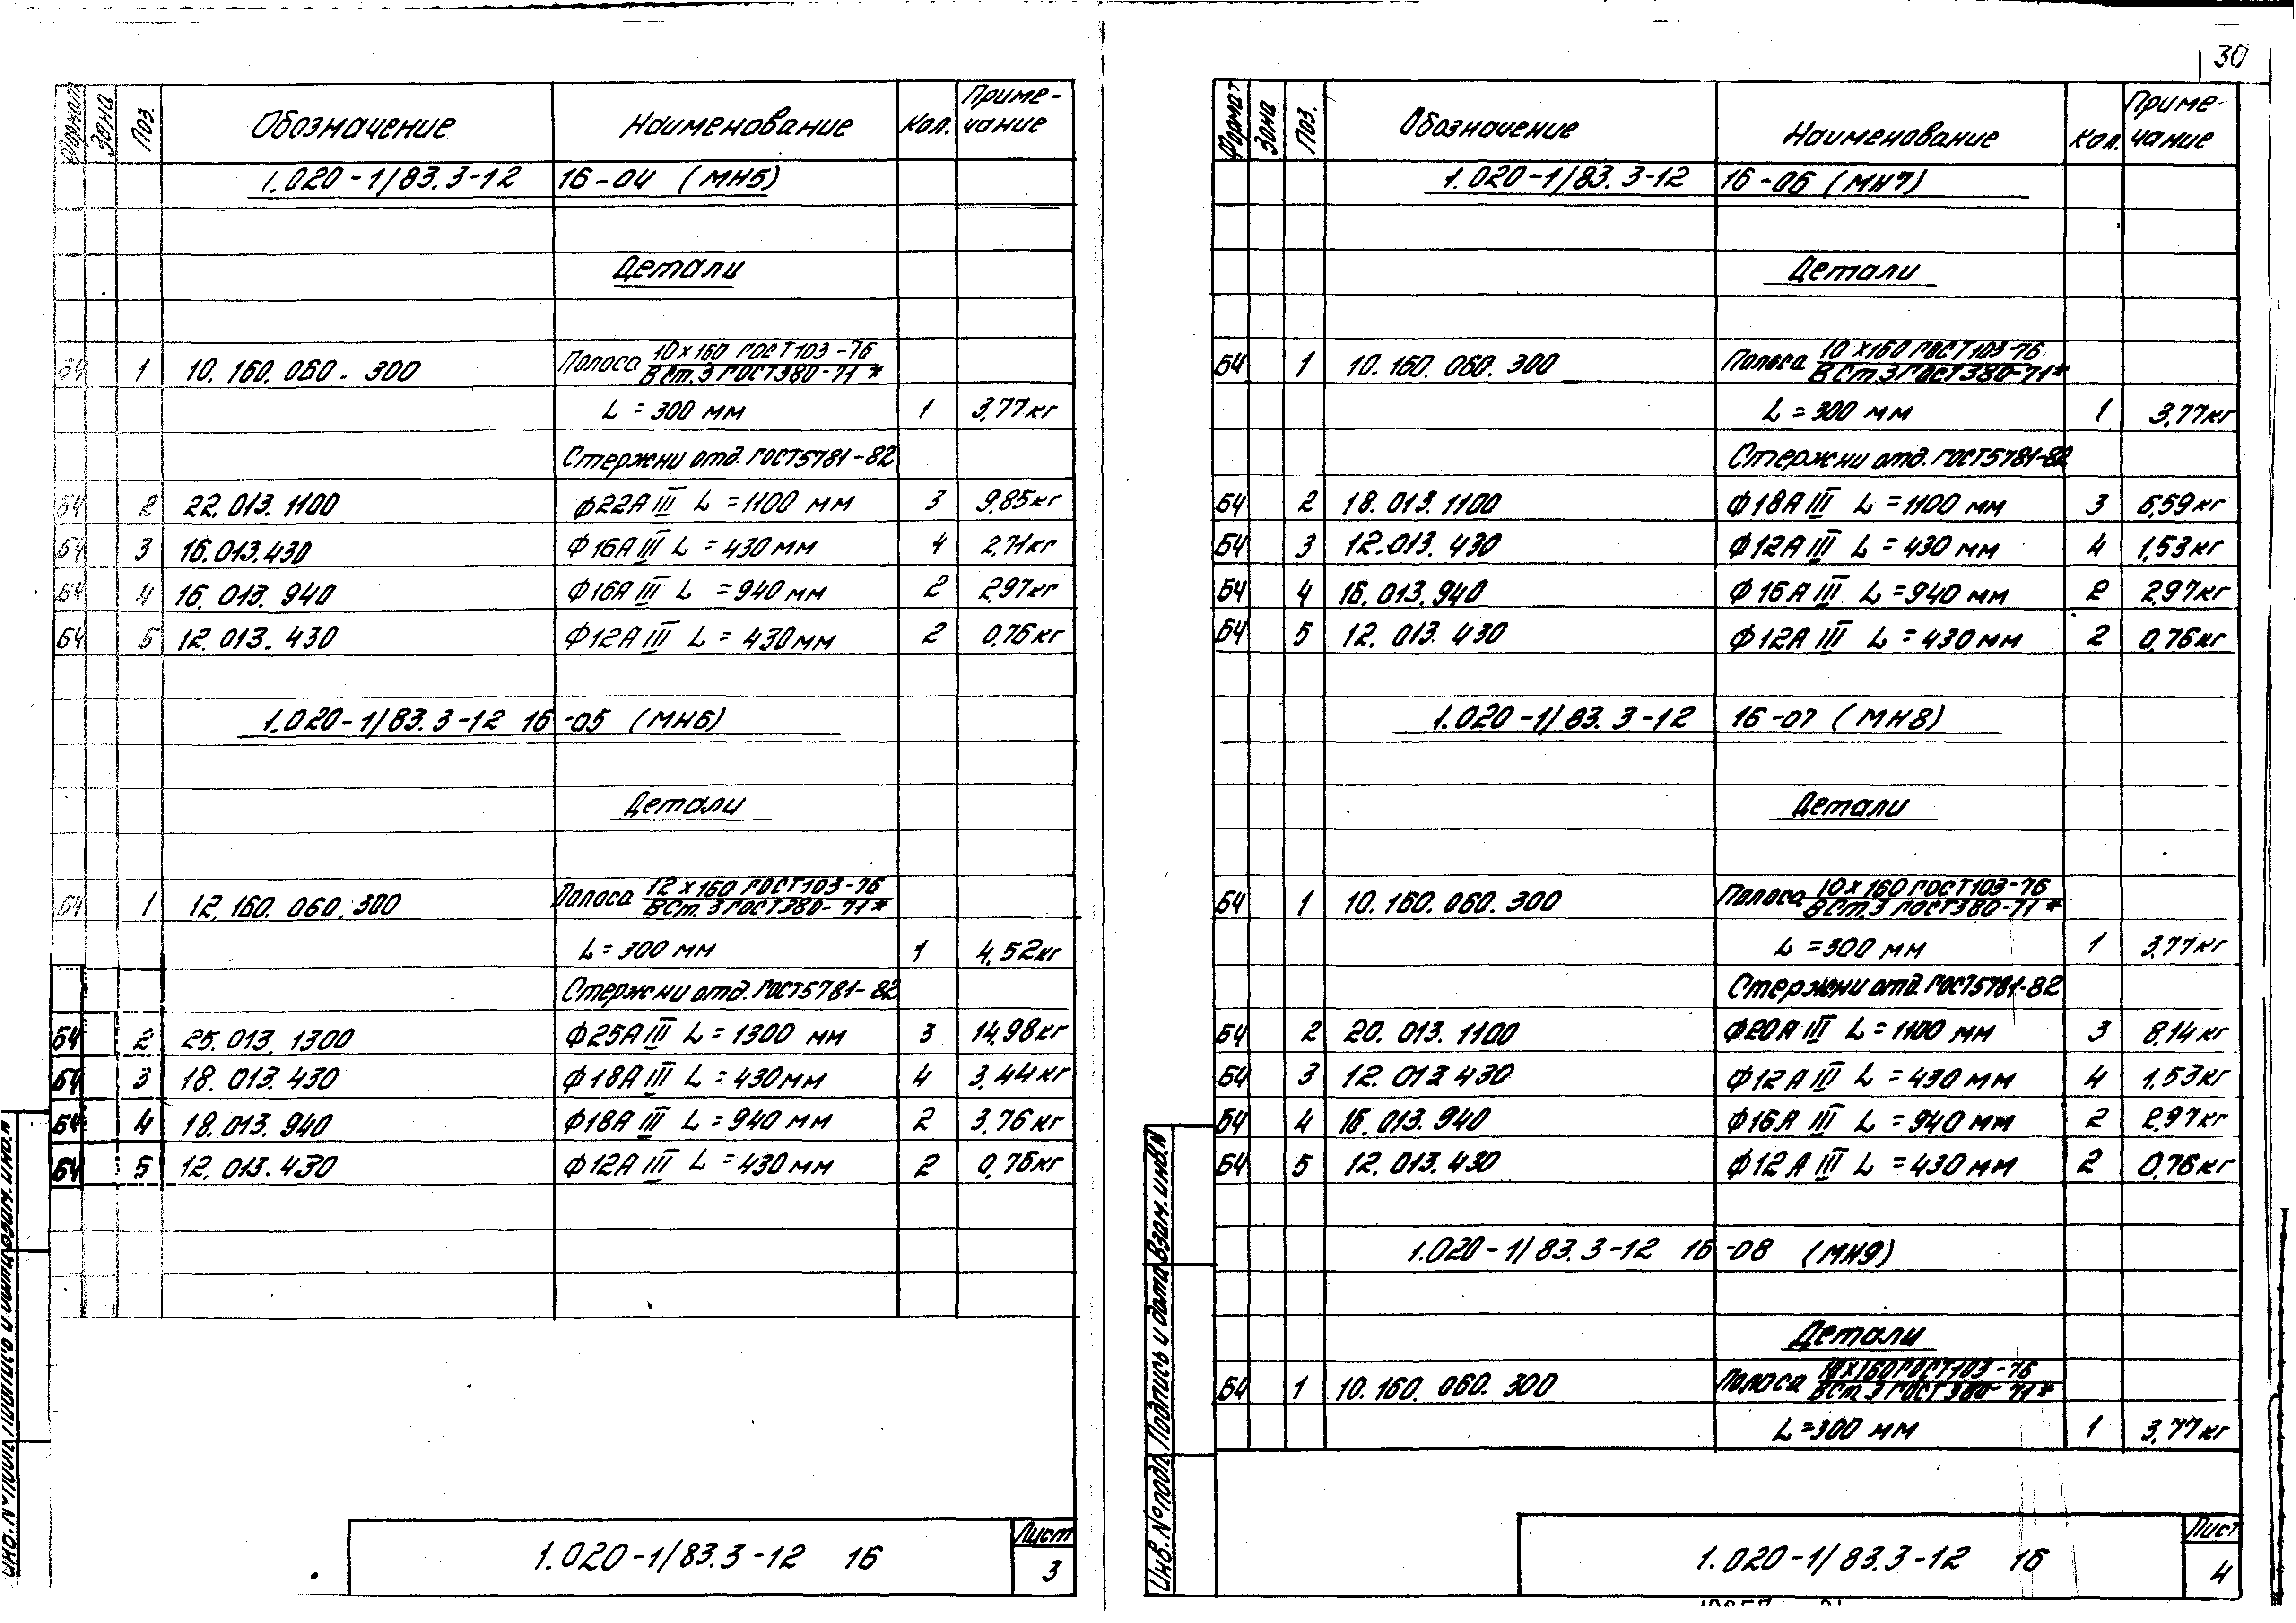 30
Формат Зона Поз. Обозначение Наименование Кол. Приме-чание
1.020-1/83.3-12 16-04 (МН5)
Детали
БЧ 1 10.160.060.300 Полоса 10×160 ГОСТ103-76
ВСт.3 ГОСТ380-71*
L=300 мм 1 3,77кг
Стержни отд. ГОСТ5781-82
БЧ 2 22.013.1100 ф22АIII L=1100 мм 3 9,85кг
БЧ 3 16.013.430 ф16АIII L=430мм 4 2,71кг
БЧ 4 16.013.940 ф16АIII L=940мм 2 2,97кг
БЧ 5 12.013.430 ф12АIII L=430мм 2 0,76кг
1.020-1/83.3-12 16-05 (МН6)
Детали
БЧ 1 12.160.060.300 Полоса 12×160 ГОСТ103-76
ВСт.3 ГОСТ380-71*
L=300 мм 1 4,52кг
Стержни отд. ГОСТ5781-82
БЧ 2 25.013.1300 ф25АIII L=1300 мм 3 14,98кг
БЧ 3 18.013.430 ф18АIII L=430мм 4 3,44кг
БЧ 4 18.013.940 ф18АIII L=940 мм 2 3,76кг
БЧ 5 12.013.430 ф12АIII L=430мм 2 0,76кг
1.020-1/83.3-12 16
Лист
3
Формат Зона Поз. Обозначение Наименование Кол. Приме-чание
1.020-1/83.3-12 16-06 (МН7)
Детали
БЧ 1 10.160.060.300 Полоса 10×160 ГОСТ103-76
ВСт.3 ГОСТ380-71*
L=300 мм 1 3,77кг
Стержни отд. ГОСТ5781-82
БЧ 2 18.013.1100 ф18АIII L=1100 мм 3 6,59кг
БЧ 3 12.013.430 ф12АIII L=430мм 4 1,53кг
БЧ 4 16.013.940 ф16АIII L=940мм 2 2,97кг
БЧ 5 12.013.430 ф12АIII L=430мм 2 0,76кг
1.020-1/83.3-12 16-07 (МН8)
Детали
БЧ 1 10.160.060.300 Полоса 10×160 ГОСТ103-76
ВСт.3 ГОСТ380-71*
L=300 мм 1 3,77кг
Стержни отд. ГОСТ5781-82
БЧ 2 20.013.1100 ф20АIII L=1100 мм 3 8,14кг
БЧ 3 12.013 430 ф12АIII L=430мм 4 1,53кг
БЧ 4 16.013.940 ф16АIII L=940мм 2 2,97кг
БЧ 5 12.013.430 ф12АIII L=430мм 2 0,76кг
1.020-1/83.3-12 16-08 (МН9)
Детали
БЧ 1 10.160.060.300 Полоса 10×160 ГОСТ103-76
ВСт.3 ГОСТ380-71*
L=300 мм 1 3,77кг
Инв.№подл. Подпись и дата Взам.инв.№
1.020-1/83.3-12 16
Лист
4